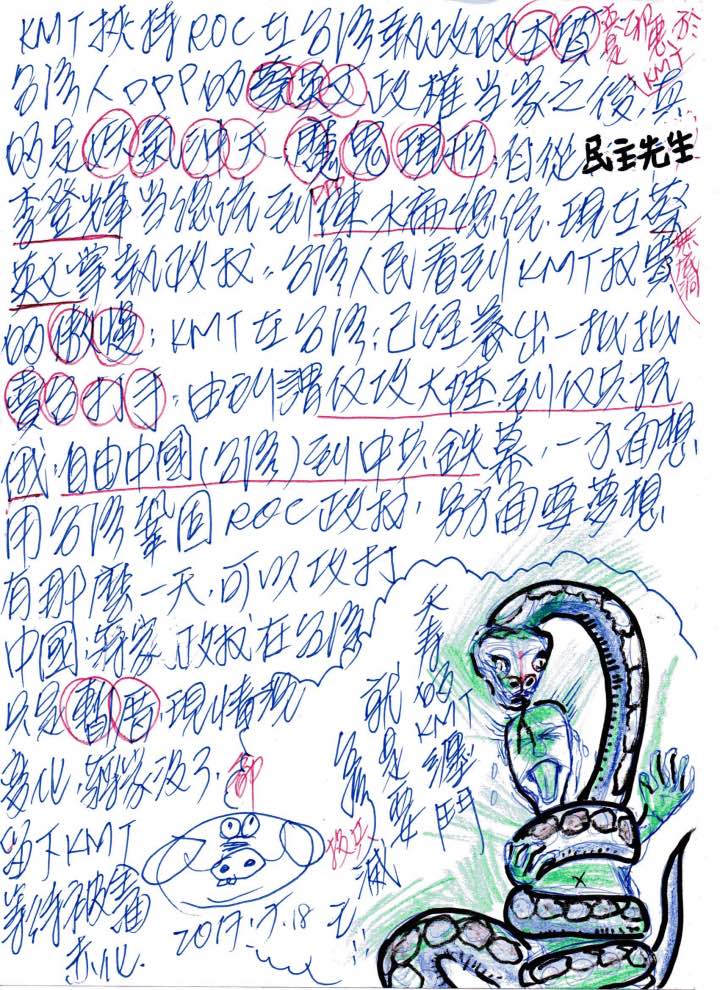 KMT挾持ROC在台灣執政的本質
台灣人DPP的蔡英文政權當家之後,真
的是妖氣沖天,魔鬼現形;自從民主先生
李登輝當總統到陳水扁總統,現在蔡
英文掌執政权,台灣人民看到KMT权貴
的傲慢;KMT在台灣;已經養出一批批
賣台打手;由到謂反攻大陸,到反共抗
俄,自由中國(台灣)到中共鉄幕,一方面想
用台灣鞏固ROC政权,另方面要夢想
有那麼一天,可以攻打
中國,蔣家政权在台灣
只是暫居,現情勢
變化,蔣家沒了,
留下KMT
等待被
赤化.
KMT
夭壽的KMT纏鬥
就是要
滅
2017.7.18